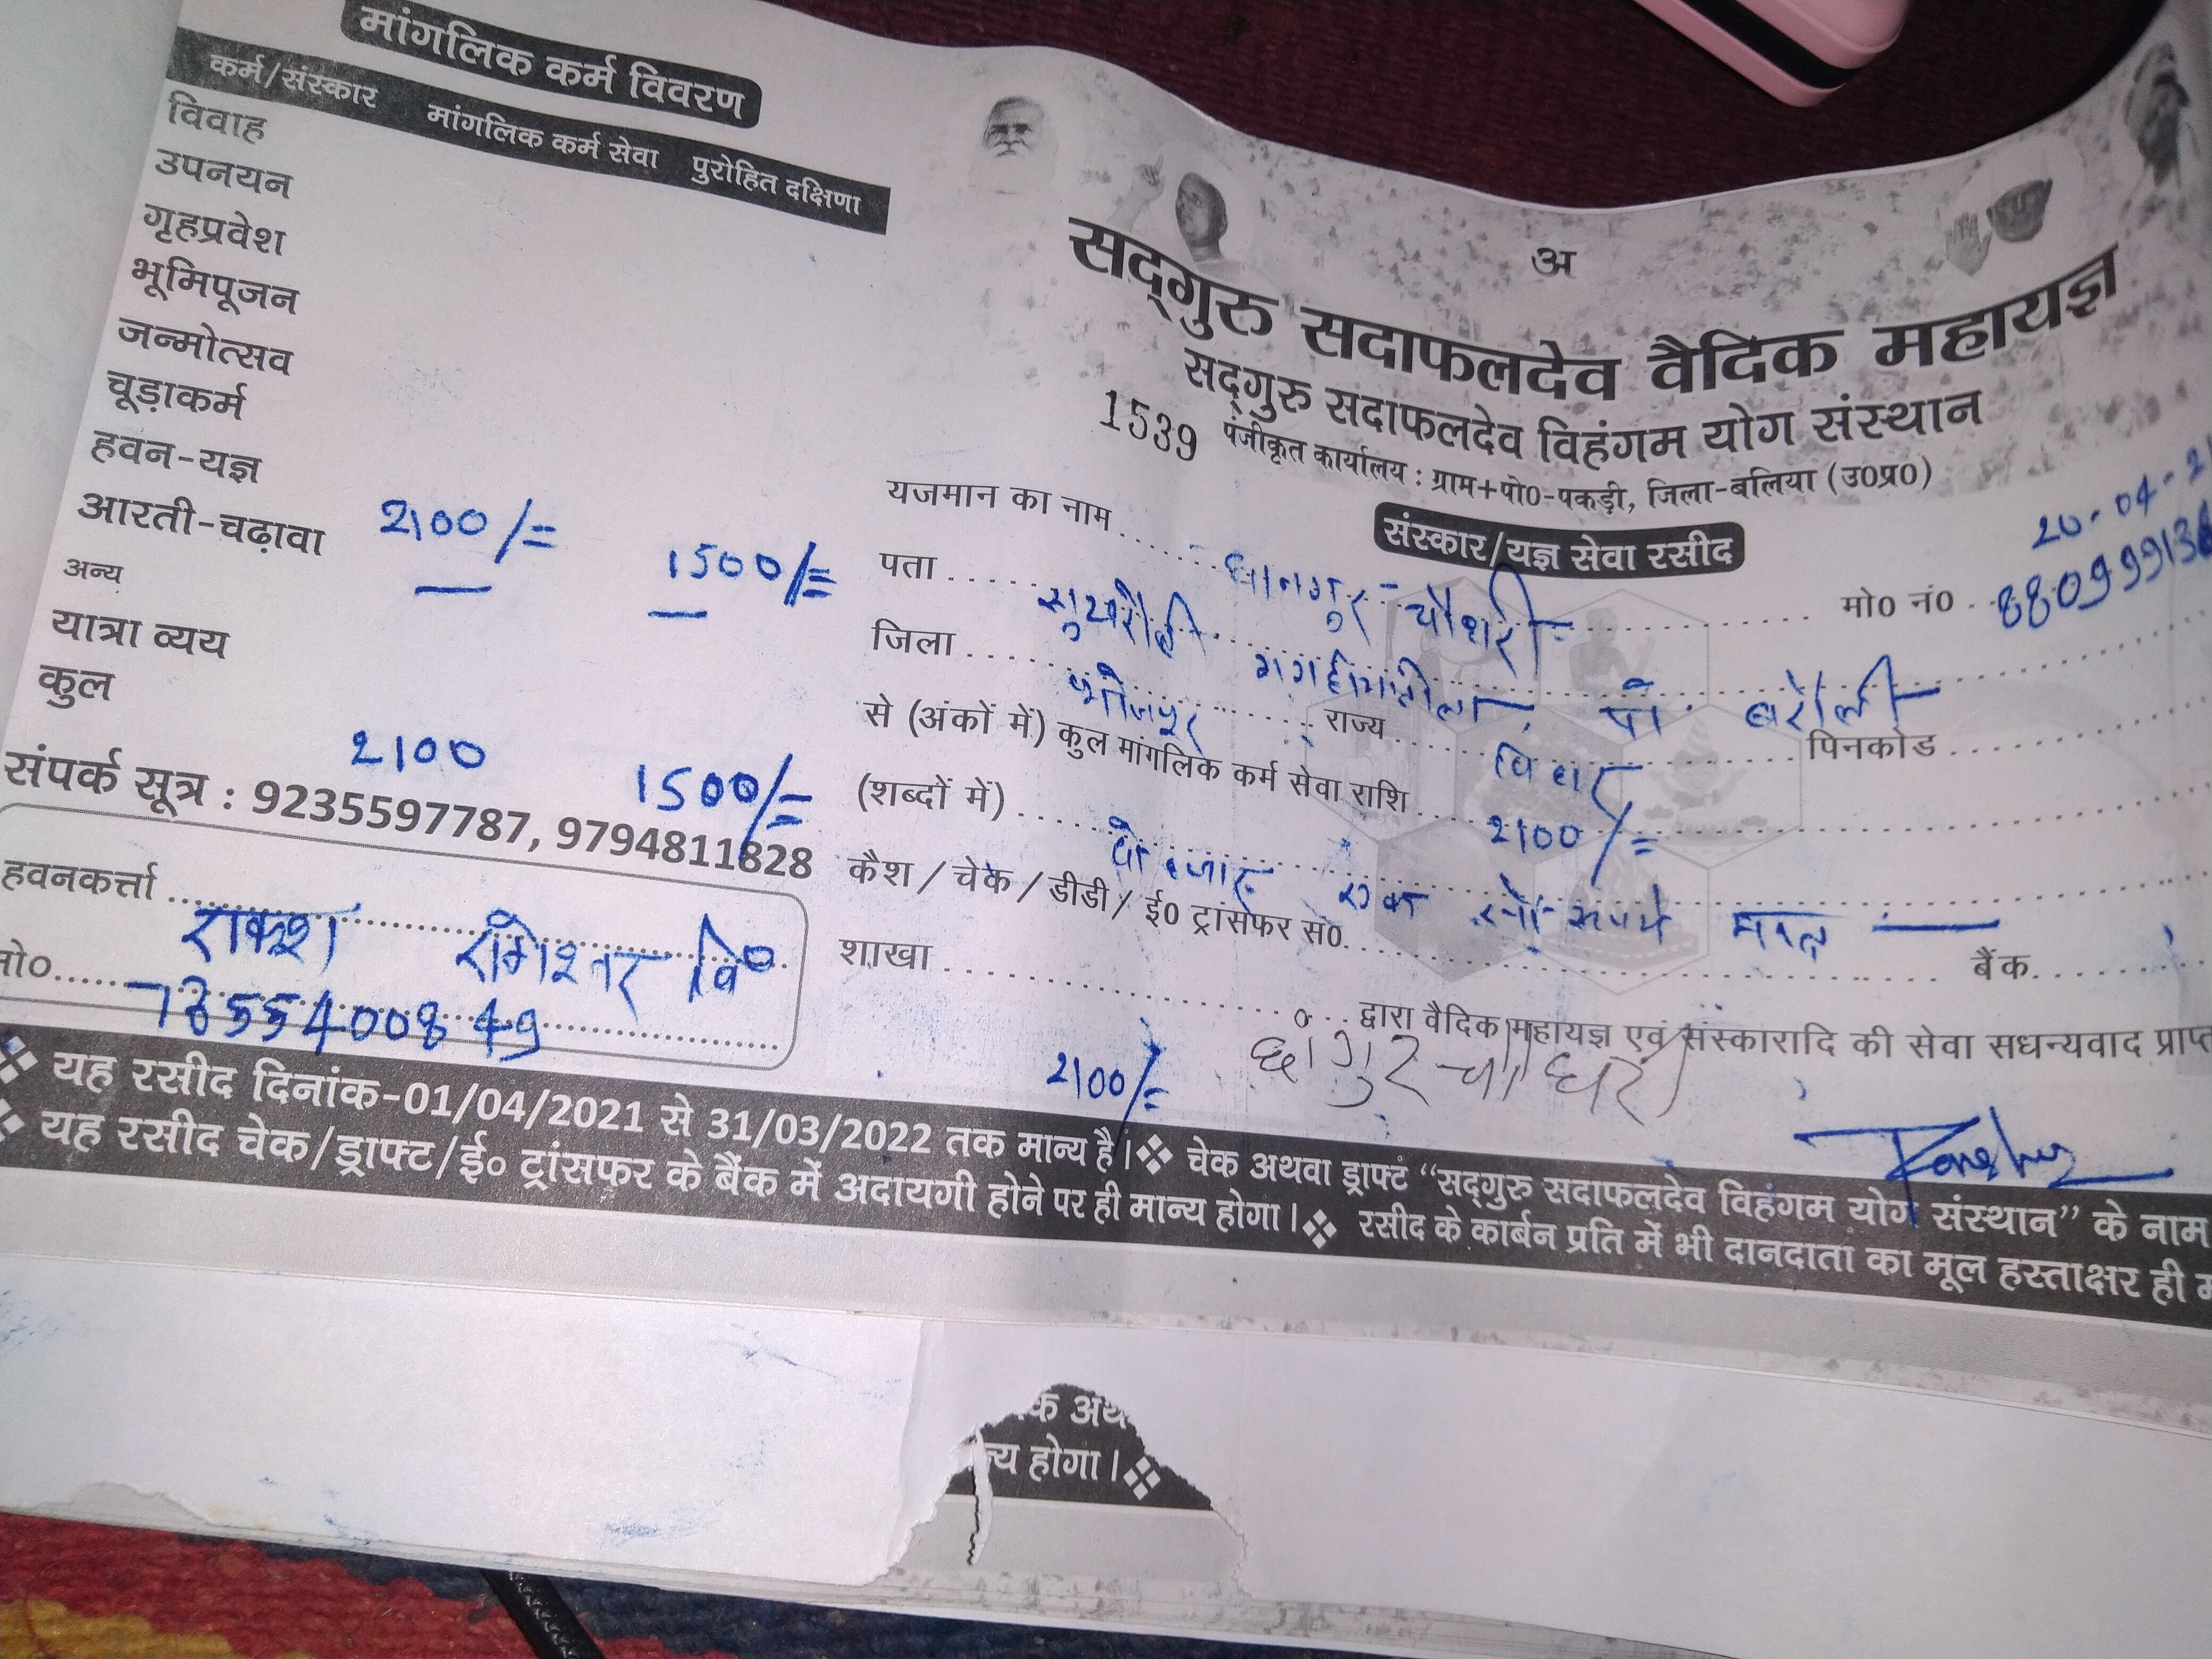 मांगलिक कर्म विवरण
कर्म/संस्कार मांगलिक कर्म सेवा पुरोहित दक्षिणा
विवाह
उपनयन
गृहप्रवेश
भूमिपूजन
जन्मोत्सव
चूड़ाकर्म
हवन-यज्ञ 2100/= 1500/=
आरती-चढ़ावा
अन्य
यात्रा व्यय
कुल 2100 1500/=
संपर्क सूत्र : 9235597787, 9794811828
हवनकर्त्ता
राकेश
मो०
अ
सद्गुरु सदाफलदेव वैदिक महायज्ञ
सद्गुरु सदाफलदेव विहंगम योग संस्थान
1539 पंजीकृत कार्यालय : ग्राम+पो0-पकड़ी, जिला-बलिया (उ0प्र0)
संस्कार/यज्ञ सेवा रसीद
20-04-2
यजमान का नाम चौधरी मो0 नं0
पता पो. बरौली
जिला भोजपुर राज्य बिहार पिनकोड
से (अंकों में) कुल मांगलिक कर्म सेवा राशि 2100/=
(शब्दों में) दो हजार एक सौ रुपये मात्र
कैश / चेक / डीडी / ई0 ट्रांसफर सं0. बैंक
शाखा द्वारा वैदिक महायज्ञ एवं संस्कारादि की सेवा सधन्यवाद प्राप्त
2100/= छांगुर चौधरी
❖ यह रसीद दिनांक-01/04/2021 से 31/03/2022 तक मान्य है। ❖ चेक अथवा ड्राफ्ट “सद्गुरु सदाफलदेव विहंगम योग संस्थान” के नाम
❖ यह रसीद चेक/ड्राफ्ट/ई० ट्रांसफर के बैंक में अदायगी होने पर ही मान्य होगा। ❖ रसीद के कार्बन प्रति में भी दानदाता का मूल हस्ताक्षर ही
क अथ
न्य होगा। ❖